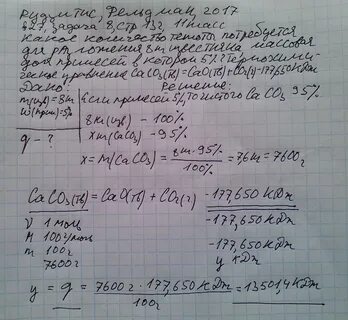 рудзитис, Фельдман, 2017
§27, задача 8, стр 132, 11 класс
Какое количество теплоты потребуется
для разложения 8т известняка, массовая
доля примесей в котором 5%? Термохими-
ческое уравнение CaCO₃(тв)=CaO(тв)+CO₂(г)-177,650 кДж
Дано: Решение:
m(изв)=8т
ω(прим)=5%
q - ?
Если примесей 5%, то чистого CaCO₃ 95%
8т(изв) - 100%
xт(CaCO₃) - 95%
x = m(CaCO₃) = 8т·95% / 100% = 7,6т = 7600г
CaCO₃(тв) = CaO(тв) + CO₂(г) -177,650 кДж
ν 1 моль -177,650 кДж
M 100г/моль
m 100г -177,650 кДж
7600г y кДж
y = q = 7600г · 177,650 кДж / 100г = 13501,4 кДж